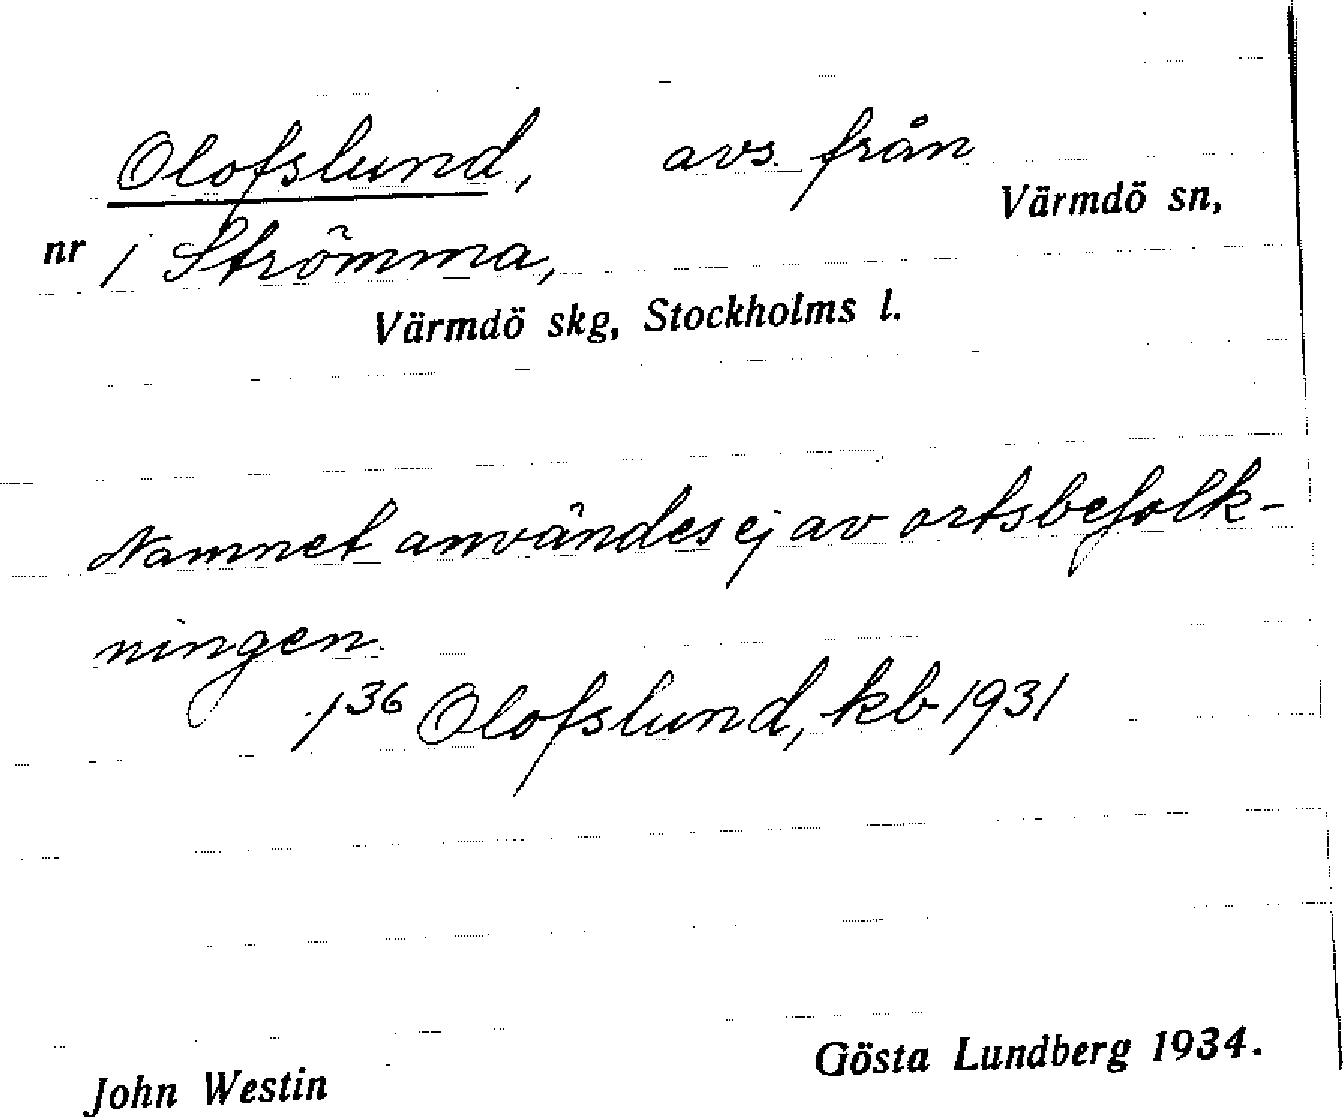 Olofslund, avs. från
Värmdö sn,
nr 1 Strömma,
Värmdö skg, Stockholms l.
Namnet användes ej av ortsbefolk-
ningen.
1³⁶ Olofslund, kb 1931
John Westin
Gösta Lundberg 1934.